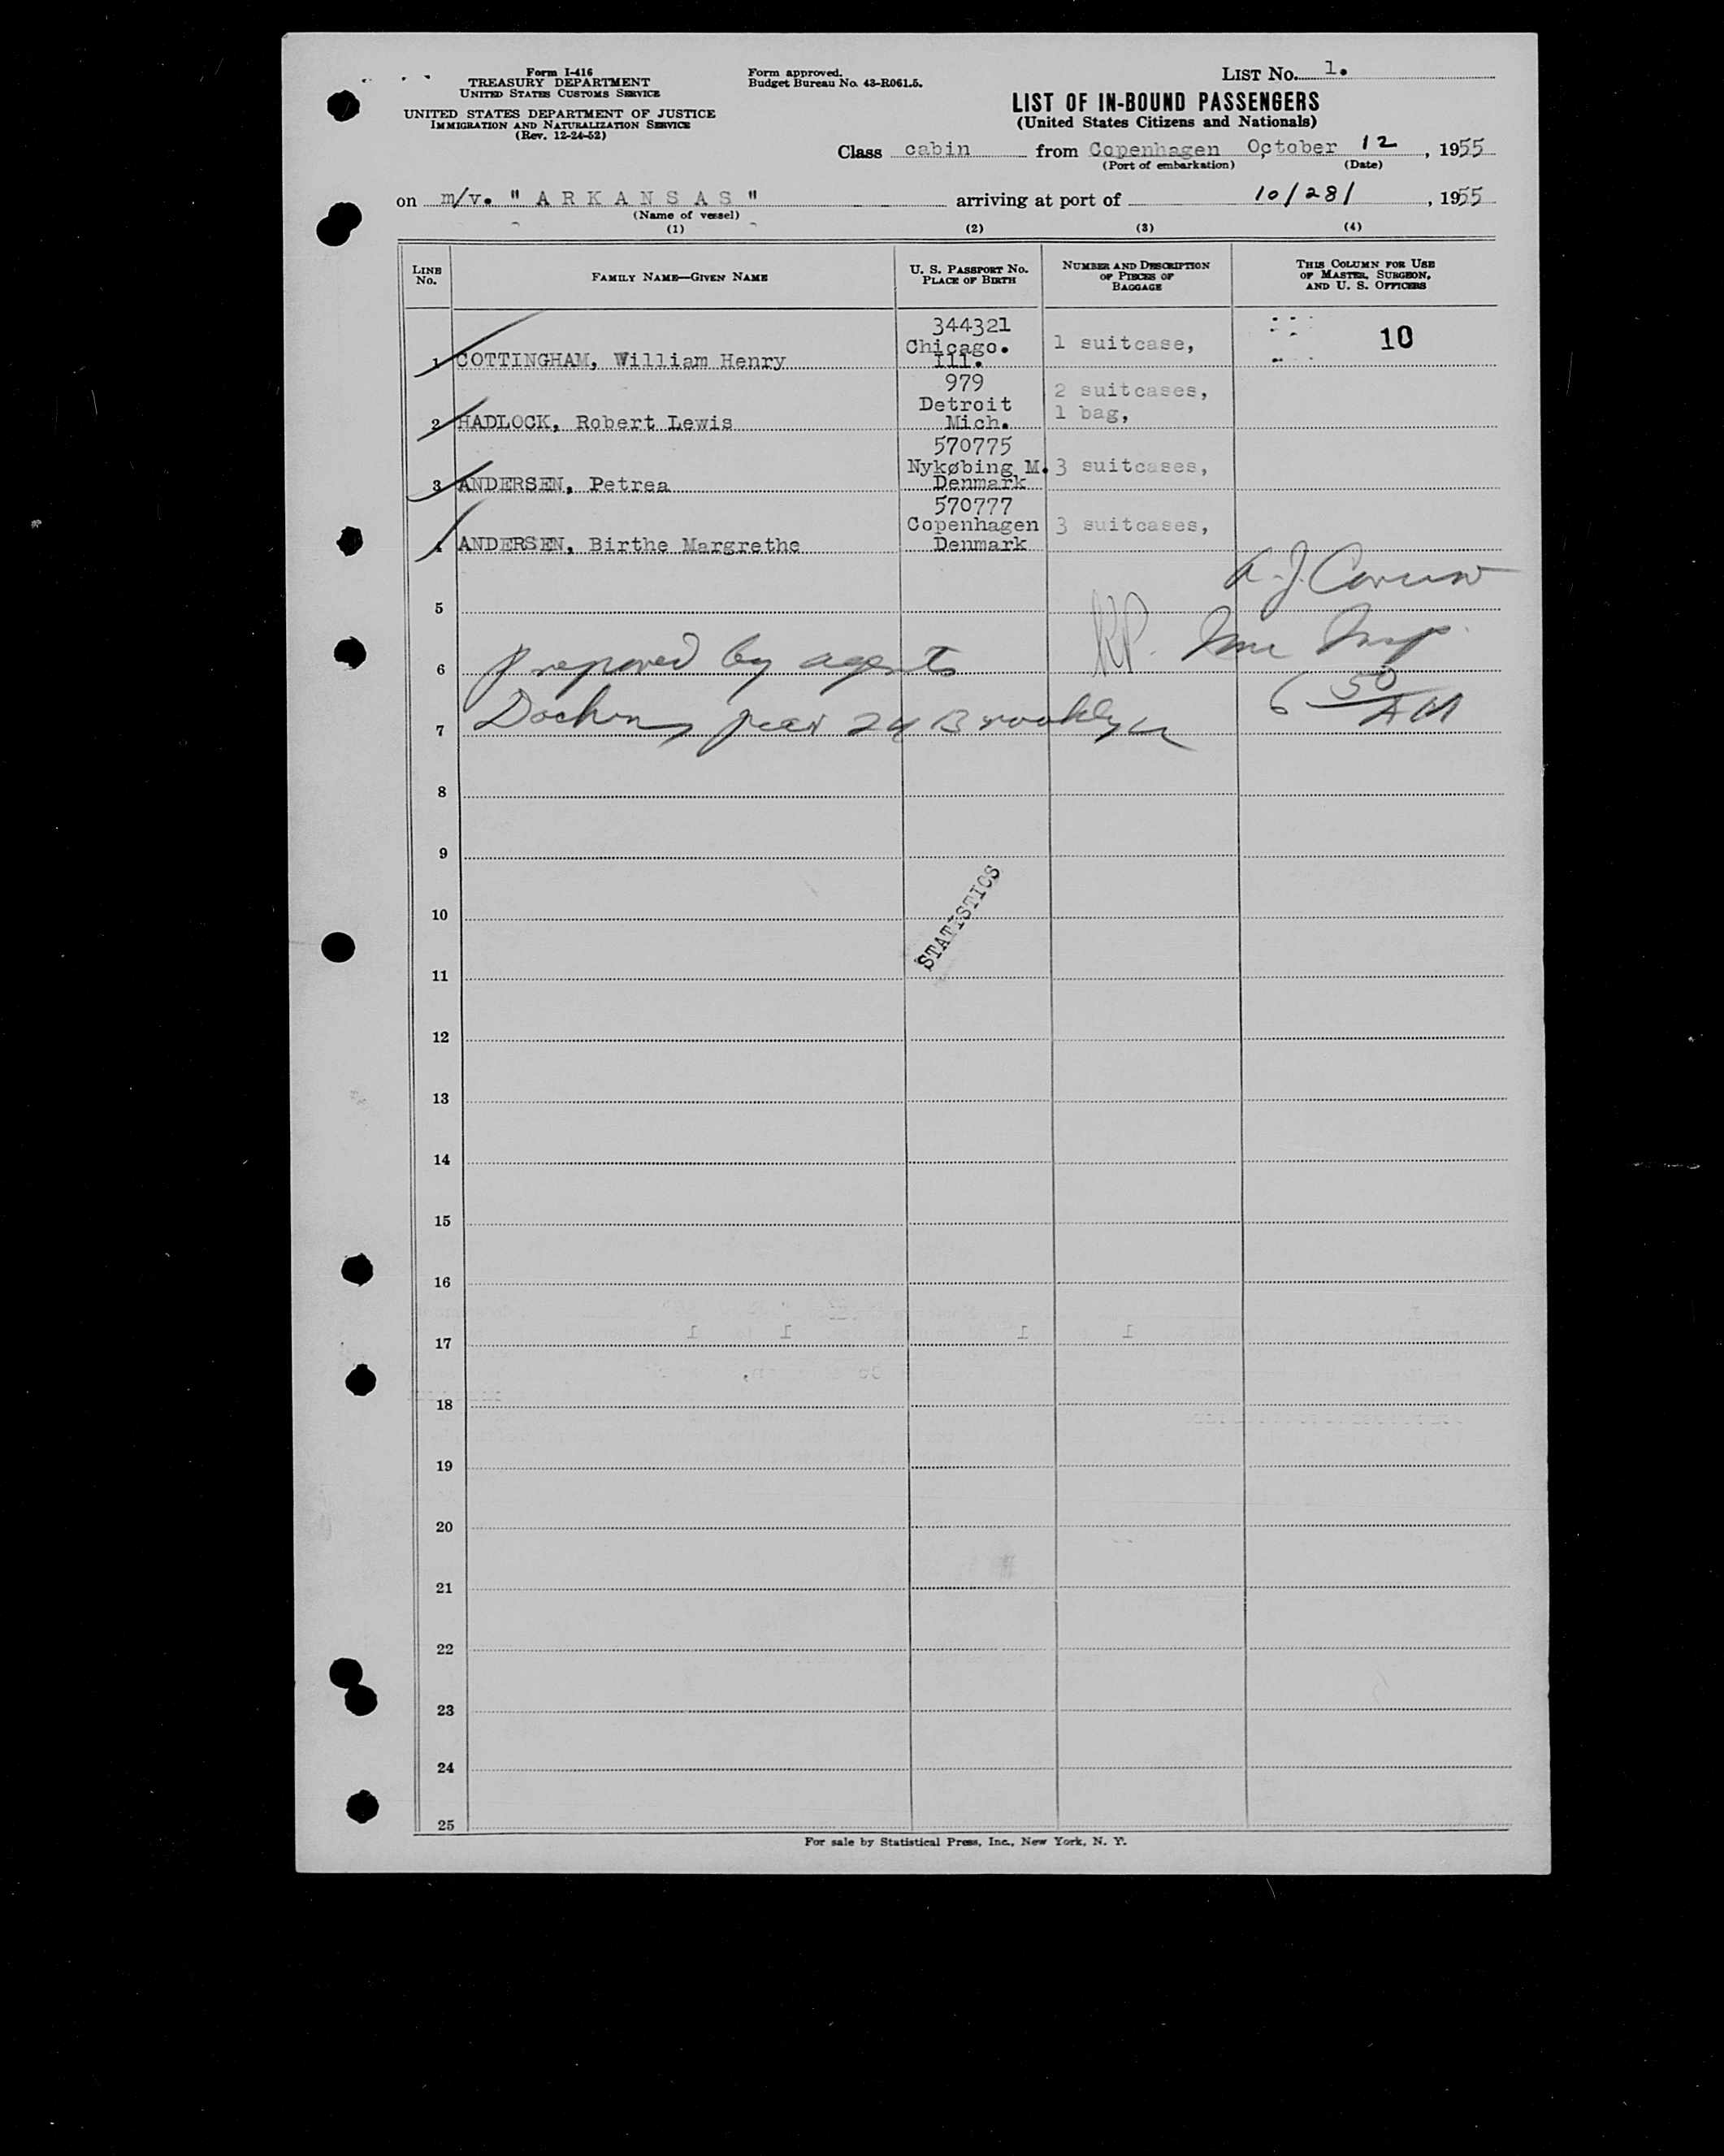 Form I-416
TREASURY DEPARTMENT
UNITED STATES CUSTOMS SERVICE
UNITED STATES DEPARTMENT OF JUSTICE
IMMIGRATION AND NATURALIZATION SERVICE
(Rev. 12-24-52)
Form approved.
Budget Bureau No. 43-R061.5.
LIST No. 1.
LIST OF IN-BOUND PASSENGERS
(United States Citizens and Nationals)
Class cabin from Copenhagen October 12, 1955
(Port of embarkation) (Date)
on m/v. " A R K A N S A S " arriving at port of 10/28/, 1955
(Name of vessel)
(1) (2) (3) (4)
LINE No. FAMILY NAME—GIVEN NAME U. S. PASSPORT No. PLACE OF BIRTH NUMBER AND DESCRIPTION OF PIECES OF BAGGAGE THIS COLUMN FOR USE OF MASTER, SURGEON, AND U. S. OFFICERS
344321
Chicago. 1 suitcase, 10
1 COTTINGHAM, William Henry Ill.
979 2 suitcases,
Detroit 1 bag,
2 HADLOCK, Robert Lewis Mich.
570775
Nykøbing M. 3 suitcases,
3 ANDERSEN, Petrea Denmark
570777
Copenhagen 3 suitcases,
4 ANDERSEN, Birthe Margrethe Denmark
5
6 prepared by agents
7 Docking pier 24 Brooklyn 6 50 AM
8
9
10
STATISTICS
11
12
13
14
15
16
17
18
19
20
21
22
23
24
25
For sale by Statistical Press, Inc., New York, N. Y.